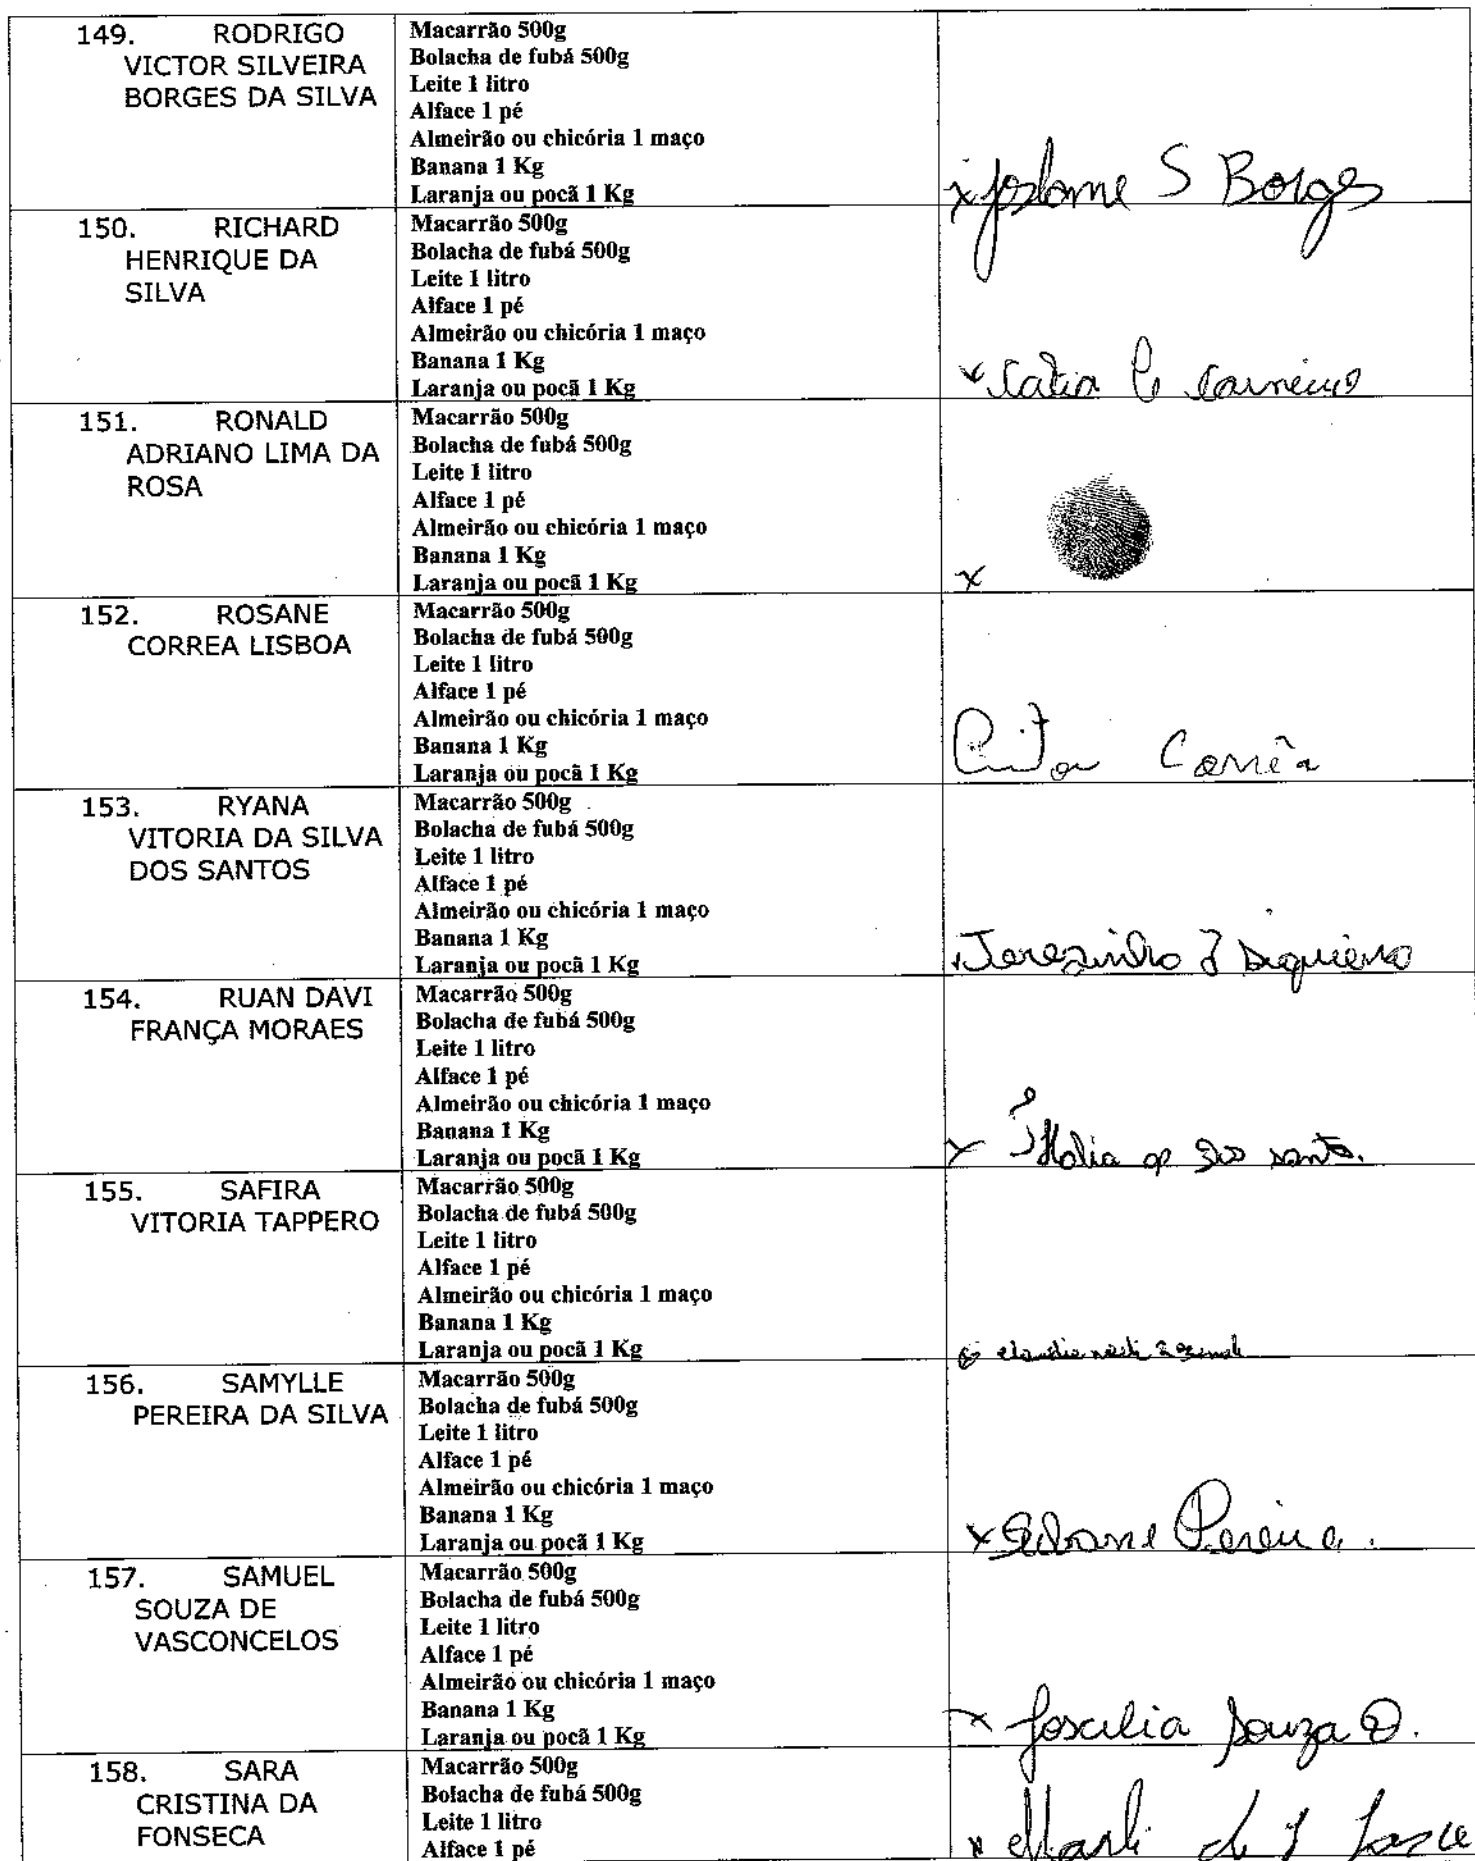 149. RODRIGO
VICTOR SILVEIRA
BORGES DA SILVA
Macarrão 500g
Bolacha de fubá 500g
Leite 1 litro
Alface 1 pé
Almeirão ou chicória 1 maço
Banana 1 Kg
Laranja ou pocã 1 Kg
S Borges
150. RICHARD
HENRIQUE DA
SILVA
Macarrão 500g
Bolacha de fubá 500g
Leite 1 litro
Alface 1 pé
Almeirão ou chicória 1 maço
Banana 1 Kg
Laranja ou pocã 1 Kg
x Catia C Carneiro
151. RONALD
ADRIANO LIMA DA
ROSA
Macarrão 500g
Bolacha de fubá 500g
Leite 1 litro
Alface 1 pé
Almeirão ou chicória 1 maço
Banana 1 Kg
Laranja ou pocã 1 Kg
x
152. ROSANE
CORREA LISBOA
Macarrão 500g
Bolacha de fubá 500g
Leite 1 litro
Alface 1 pé
Almeirão ou chicória 1 maço
Banana 1 Kg
Laranja ou pocã 1 Kg
Corrêa
153. RYANA
VITORIA DA SILVA
DOS SANTOS
Macarrão 500g
Bolacha de fubá 500g
Leite 1 litro
Alface 1 pé
Almeirão ou chicória 1 maço
Banana 1 Kg
Laranja ou pocã 1 Kg
154. RUAN DAVI
FRANÇA MORAES
Macarrão 500g
Bolacha de fubá 500g
Leite 1 litro
Alface 1 pé
Almeirão ou chicória 1 maço
Banana 1 Kg
Laranja ou pocã 1 Kg
x
155. SAFIRA
VITORIA TAPPERO
Macarrão 500g
Bolacha de fubá 500g
Leite 1 litro
Alface 1 pé
Almeirão ou chicória 1 maço
Banana 1 Kg
Laranja ou pocã 1 Kg
156. SAMYLLE
PEREIRA DA SILVA
Macarrão 500g
Bolacha de fubá 500g
Leite 1 litro
Alface 1 pé
Almeirão ou chicória 1 maço
Banana 1 Kg
Laranja ou pocã 1 Kg
x Pereira.
157. SAMUEL
SOUZA DE
VASCONCELOS
Macarrão 500g
Bolacha de fubá 500g
Leite 1 litro
Alface 1 pé
Almeirão ou chicória 1 maço
Banana 1 Kg
Laranja ou pocã 1 Kg
x Joscilia Souza D.
158. SARA
CRISTINA DA
FONSECA
Macarrão 500g
Bolacha de fubá 500g
Leite 1 litro
Alface 1 pé
x Marli